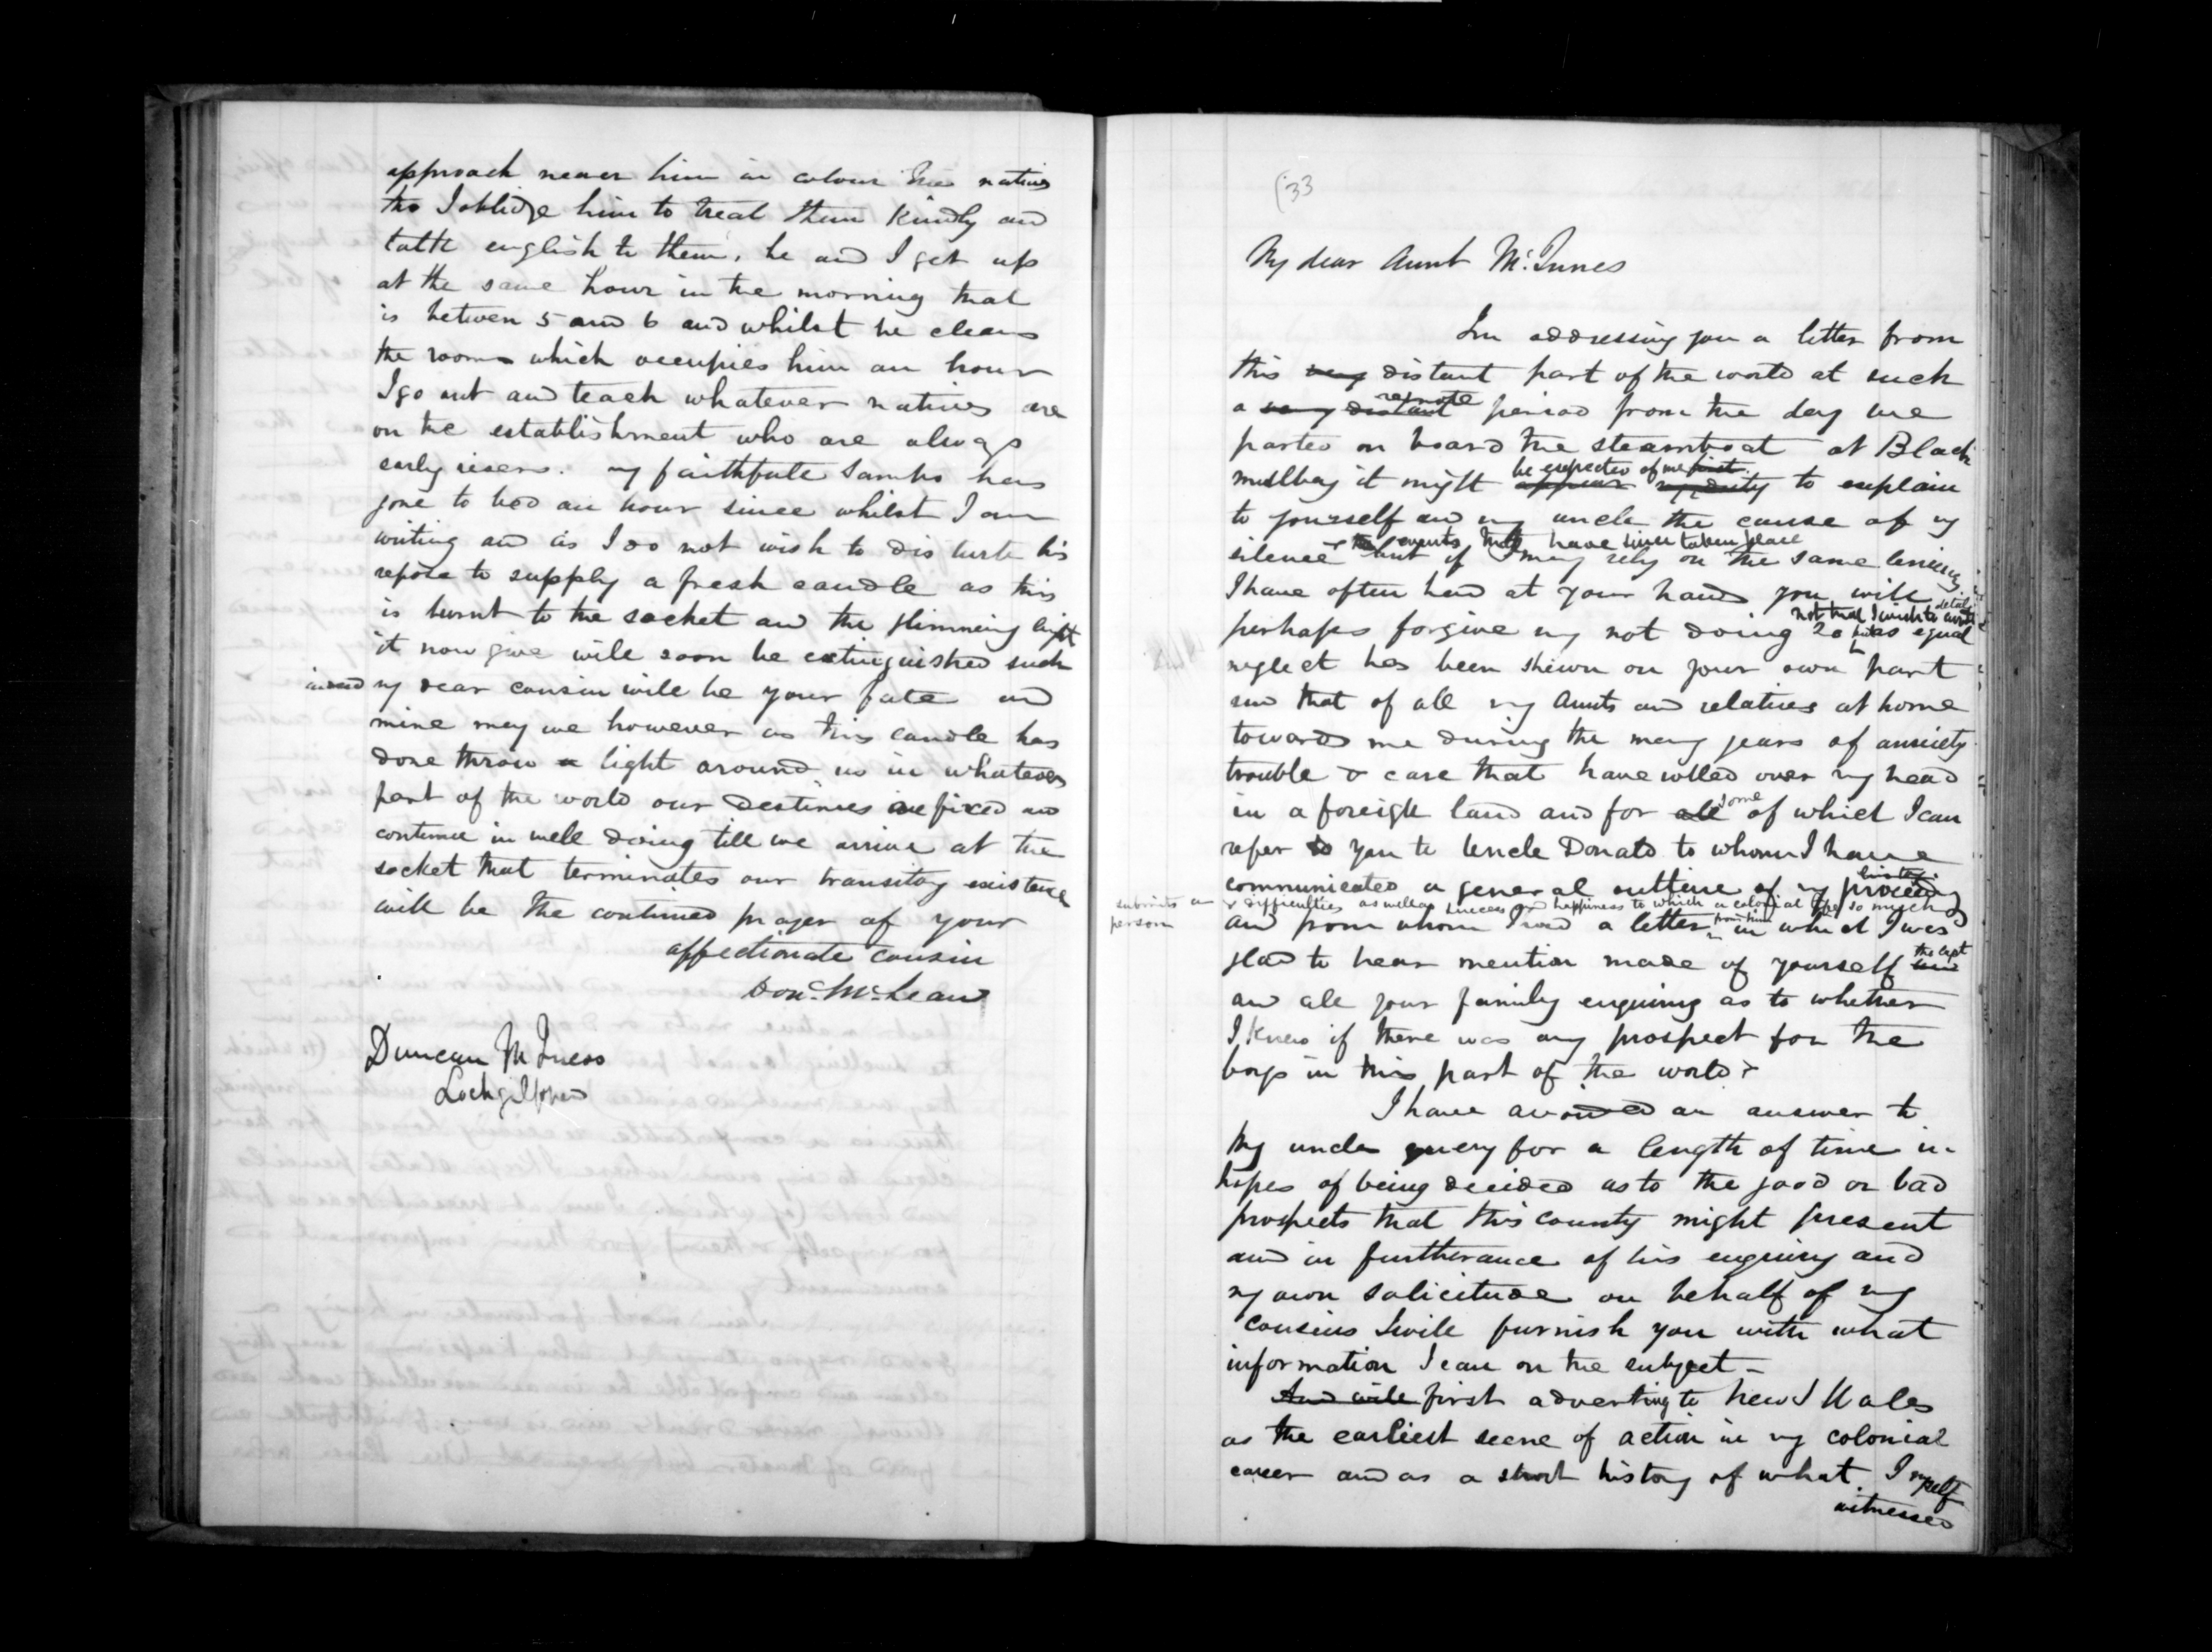 approach nearer him in colour the natives
tho I oblidge him to treat them kindly and
talk english to them, he and I get up
at the same hour in the morning that
is between 5 and 6 and whilst he cleans
the rooms which occupies him an hour
I go out and teach whatever natives are
on the establishment who are always
early risers. my faithfull Sambo has
gone to bed an hour since whilst I am
writing and as I do not wish to disturb his
repose to supply a fresh candle as this
is burnt to the socket and the glimmering light
it now give will soon be extinguished such
indeed my dear cousin will be your fate and
mine may we however as this candle has
done throw a light around us in whatever
part of the world our destinies are fixed and
continue in well doing till we arrive at the
socket that terminates our transitory existence
will be the continued prayer of your
affectionate cousin
Don. McLean
Duncan McInnes
Lochgilphead
(33
My dear Aunt McInnes
In addressing you a letter from
this very distant part of the world at such
a very distant remote period from the day we
parted on board the steamboat at Black
millbay it might appear be expected of me first my duty to explain
to yourself and my uncle the cause of my
silence & the events that have since taken place but if I may rely on the same leniency
I have often had at your hands you will
perhaps forgive my not doing so not that I wish to but as equal
neglect has been shewn on your own part
and that of all my Aunts and relatives at home
towards me during the many years of anxiety
trouble & care that have rolled over my head
in a foreign land and for all some of which I can
refer to you to Uncle Donald to whom I have
communicated a general outline of my proceedings history
& difficulties as well as success and happiness to which a colonial life so much
submits a person
and from whom I had a letter from him in which I was
glad to hear mention made of yourself and the capt
and all your family enquiring as to whether
I knew if there was any prospect for the
boys in this part of the world &
I have avoided an answer to
my uncles query for a length of time in
hopes of being decided as to the good or bad
prospects that this country might present
and in furtherance of his enquiry and
my own solicitude on behalf of my
cousins I will furnish you with what
information I can on the subject -
And will first adverting to New S Wales
as the earliest scene of action in my colonial
career and as a short history of what I myself
witnessed